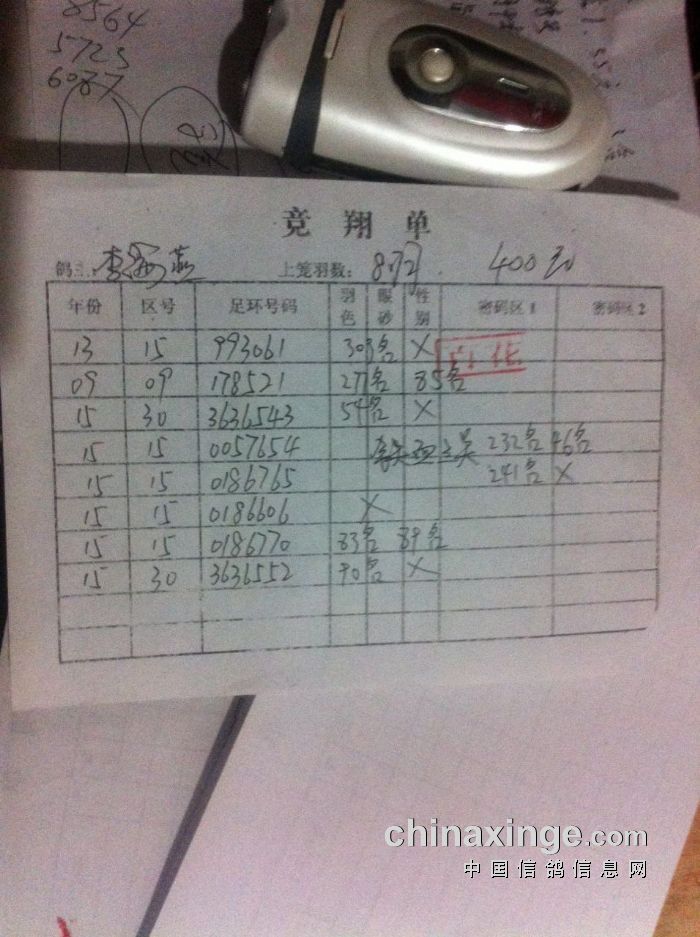 8564
5723
6087
竞翔单
鸽主: 李 燕 上笼羽数: 8羽. 400元
年份 区号 足环号码 羽色 眼砂 性别 密码区1 密码区2
13 15 993061 303名 X
09 09 178521 27名 85名
15 30 3636543 54名 X
15 15 0057654 232名 46名
15 15 0186765 241名 X
15 15 0186606 X
15 15 0186770 83名 89名
15 30 3636552 90名 X
chinaxinge.com
中国信鸽信息网